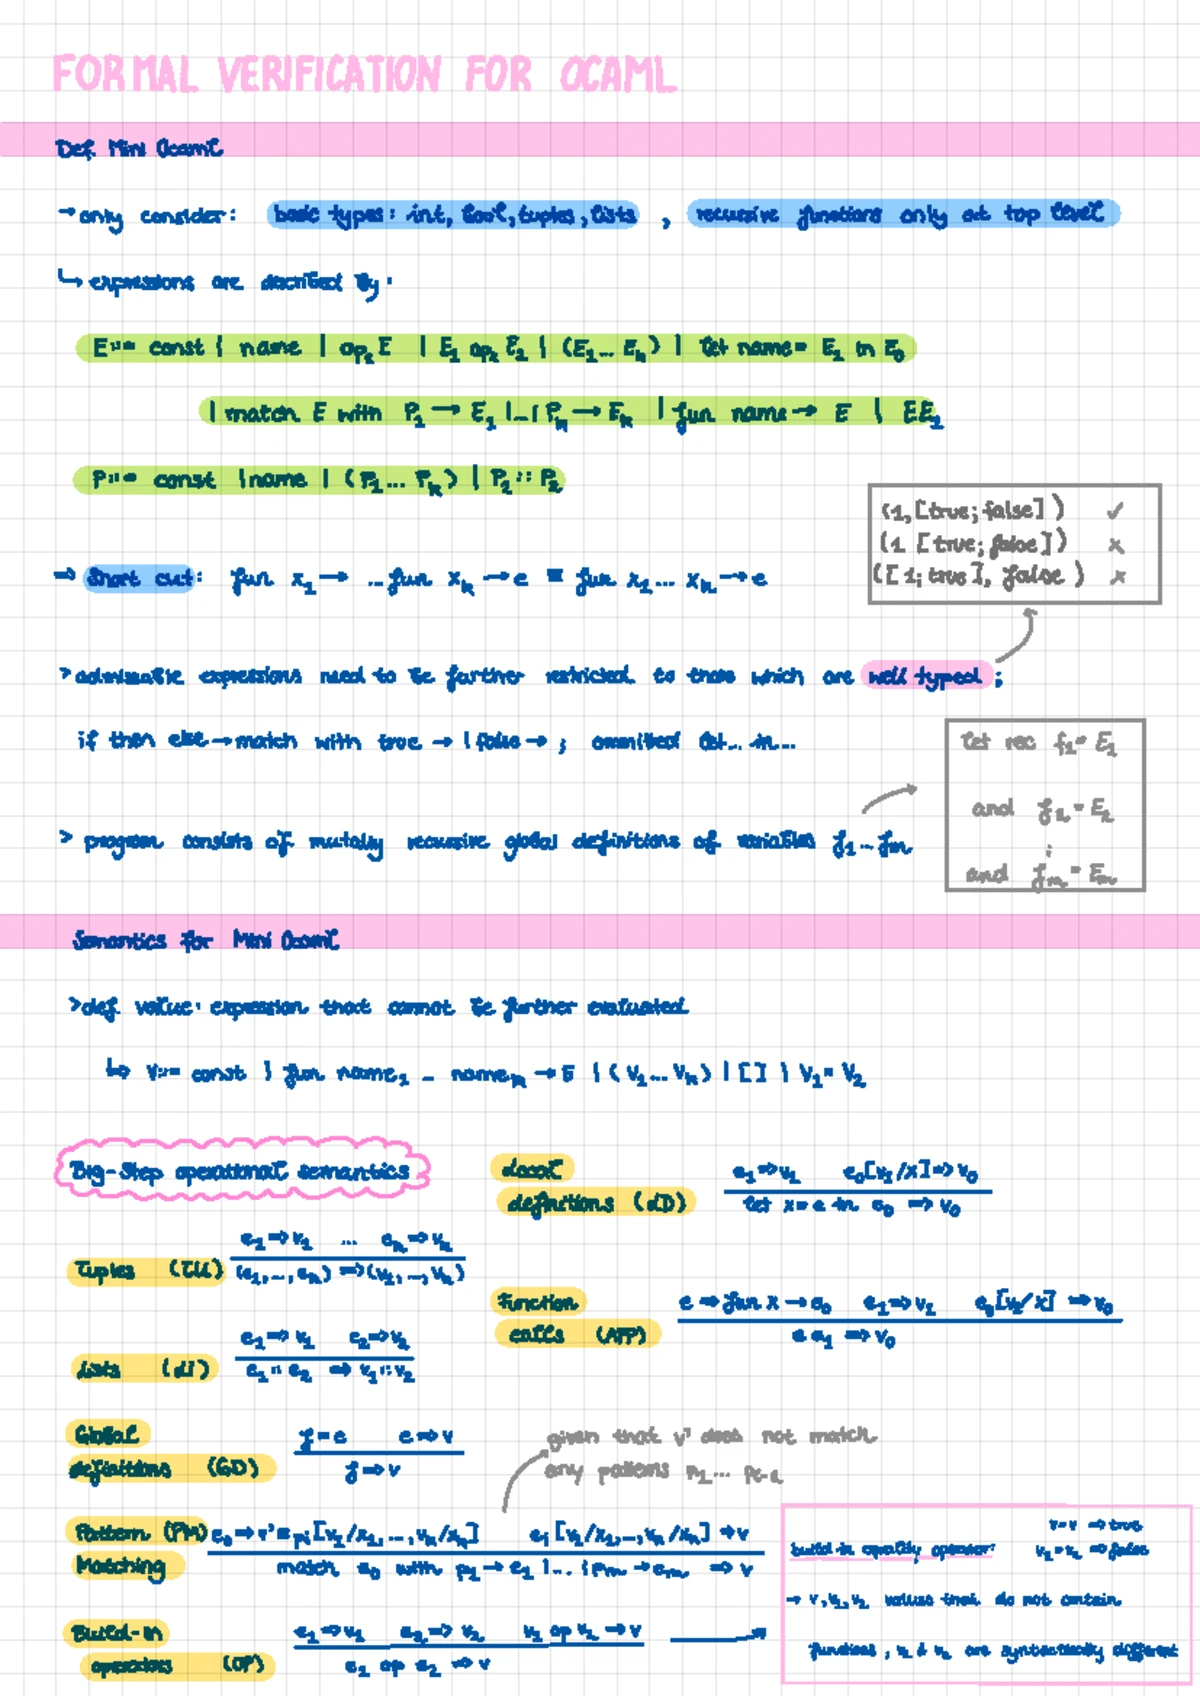 FORMAL VERIFICATION FOR OCAML
Def. Mini Ocaml
→ only consider: basic types: int, bool, tuples, lists , recursive functions only at top level
↳ expressions are described by:
E::= const | name | op₁ E | E₁ op₂ E₂ | (E₁... Eₖ) | let name = E₁ in E₀
| match E with P₁ → E₁ |...| Pₖ → Eₖ | fun name → E | E E₁
P::= const | name | (P₁... Pₖ) | P₁ :: P₂
(1, [true; false]) ✓
(1 [true; false]) x
([1; true], false) x
⇒ Short cut: fun x₁ → ... fun xₖ → e ≡ fun x₁... xₖ → e
> admissable expressions need to be further restricted to those which are well typed ;
if then else → match with true → | false → ; ommitted let... in...
let rec f₁ = E₁
and f₂ = E₂
⋮
and fₘ = Eₘ
> program consists of mutally recursive global definitions of variables f₁... fₘ
Semantics for Mini Ocaml
> def. value: expression that cannot be further evaluated
↳ V::= const | fun name₁ ... nameₙ → E | (V₁... Vₖ) | [] | V₁ :: V₂
Big-Step operational semantics
Local definitions (LD)
e₁ ⇒ v₁ e₀[v₁/x] ⇒ v₀
let x = e in e₀ ⇒ v₀
Tuples (TU)
e₁ ⇒ v₁ ... eₖ ⇒ vₖ
(e₁,..., eₖ) ⇒ (v₁,..., vₖ)
Function calls (APP)
e ⇒ fun x → e₀ e₁ ⇒ v₁ e₀[v₁/x] ⇒ v₀
e e₁ ⇒ v₀
Lists (LI)
e₁ ⇒ v₁ e₂ ⇒ v₂
e₁ :: e₂ ⇒ v₁ :: v₂
Global definitions (GD)
f = e e ⇒ v
f ⇒ v
given that v' does not match
any patterns p₁... pᵢ₋₁
Pattern (PM) Matching
e₀ ⇒ v' ≡ pᵢ[v₁/x₁,..., vₖ/xₖ] eᵢ[v₁/x₁,..., vₖ/xₖ] ⇒ v
match e₀ with p₁ → e₁ |... | pₘ → eₘ ⇒ v
Build-in operators (OP)
e₁ ⇒ v₁ e₂ ⇒ v₂ v₁ op v₂ ⇒ v
e₁ op e₂ ⇒ v
build-in equality operator:
v = v ⇒ true
v₁ = v₂ ⇒ false
→ v, v₁, v₂ values that do not contain
functions, v₁ & v₂ are syntactically different